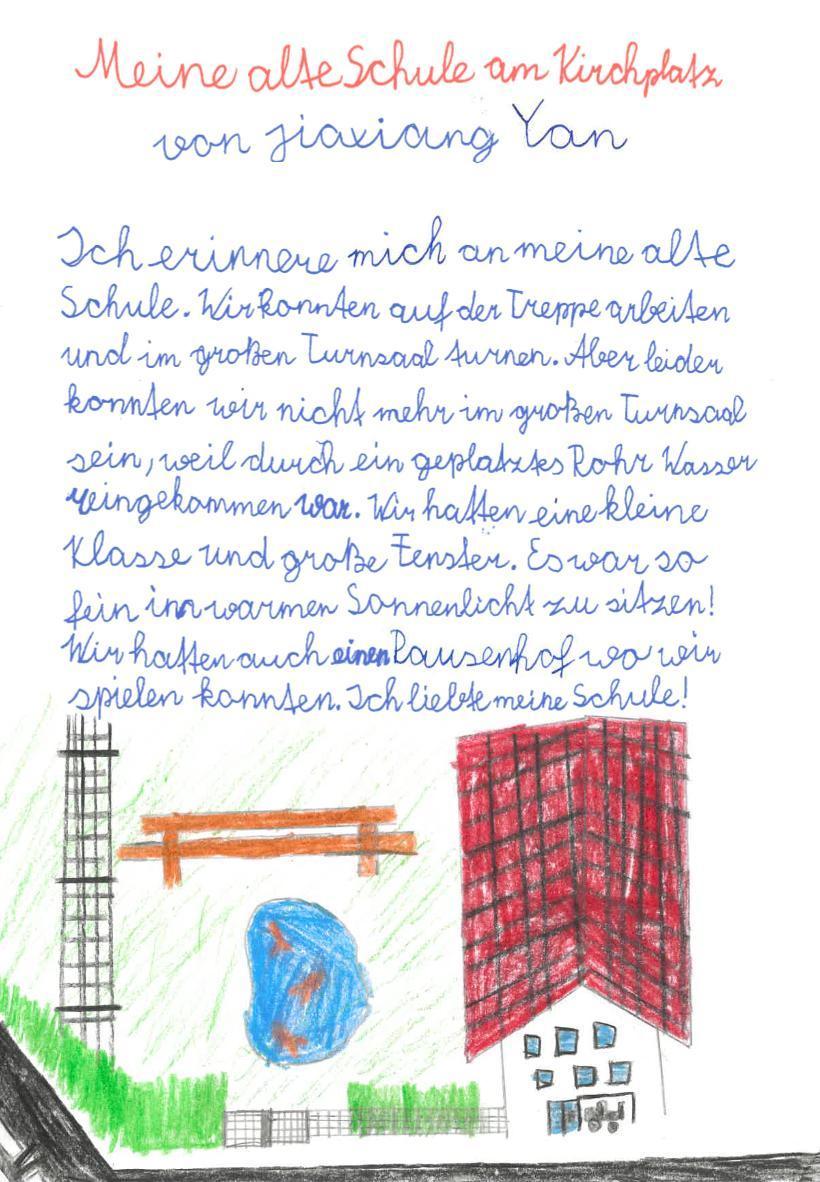 Meine alte Schule am Kirchplatz
von jiaxiang Yan
Ich erinnere mich an meine alte
Schule. Wir konnten auf der Treppe arbeiten
und im großen Turnsaal turnen. Aber leider
konnten wir nicht mehr im großen Turnsaal
sein, weil durch ein geplatztes Rohr Wasser
reingekommen war. Wir hatten eine kleine
Klasse und große Fenster. Es war so
fein im warmen Sonnenlicht zu sitzen!
Wir hatten auch einen Pausenhof wo wir
spielen konnten. Ich liebte meine Schule!